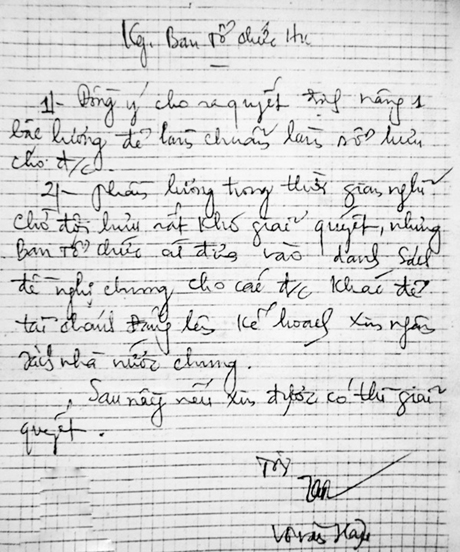 Kg. Ban Tổ chức Hu
1/- Đồng ý cho ra quyết định nâng 1
bậc lương để làm chuẩn làm sổ hưu
cho đ/c.
2/- Phần lương trong thời gian nghỉ
chờ đợi hưu rất khó giải quyết, nhưng
Ban Tổ chức cứ đưa vào danh sách
đề nghị chung cho các đ/c khác để
tài chánh Đảng lên kế hoạch xin ngân
sách nhà nước chung.
Sau này nếu xin được có thì giải
quyết.
Võ văn